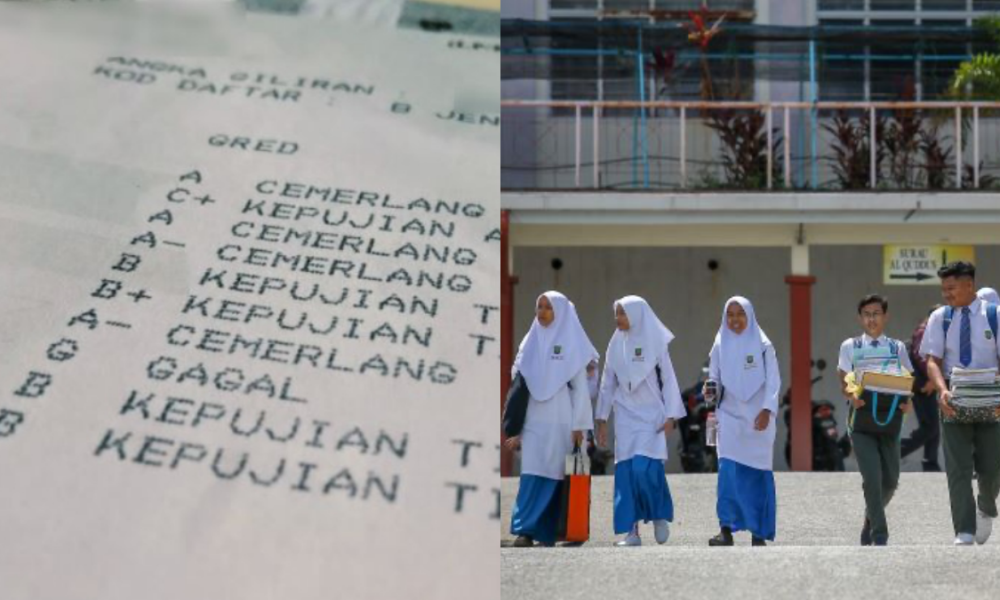 ANGKA GILIRAN
KOD DAFTAR : B JEN
GRED
A CEMERLANG
C+ KEPUJIAN A
A CEMERLANG
A- CEMERLANG
B KEPUJIAN T
B+ KEPUJIAN T
A- CEMERLANG
G GAGAL
B KEPUJIAN TI
B KEPUJIAN TI
SURAU
AL QUDDUS